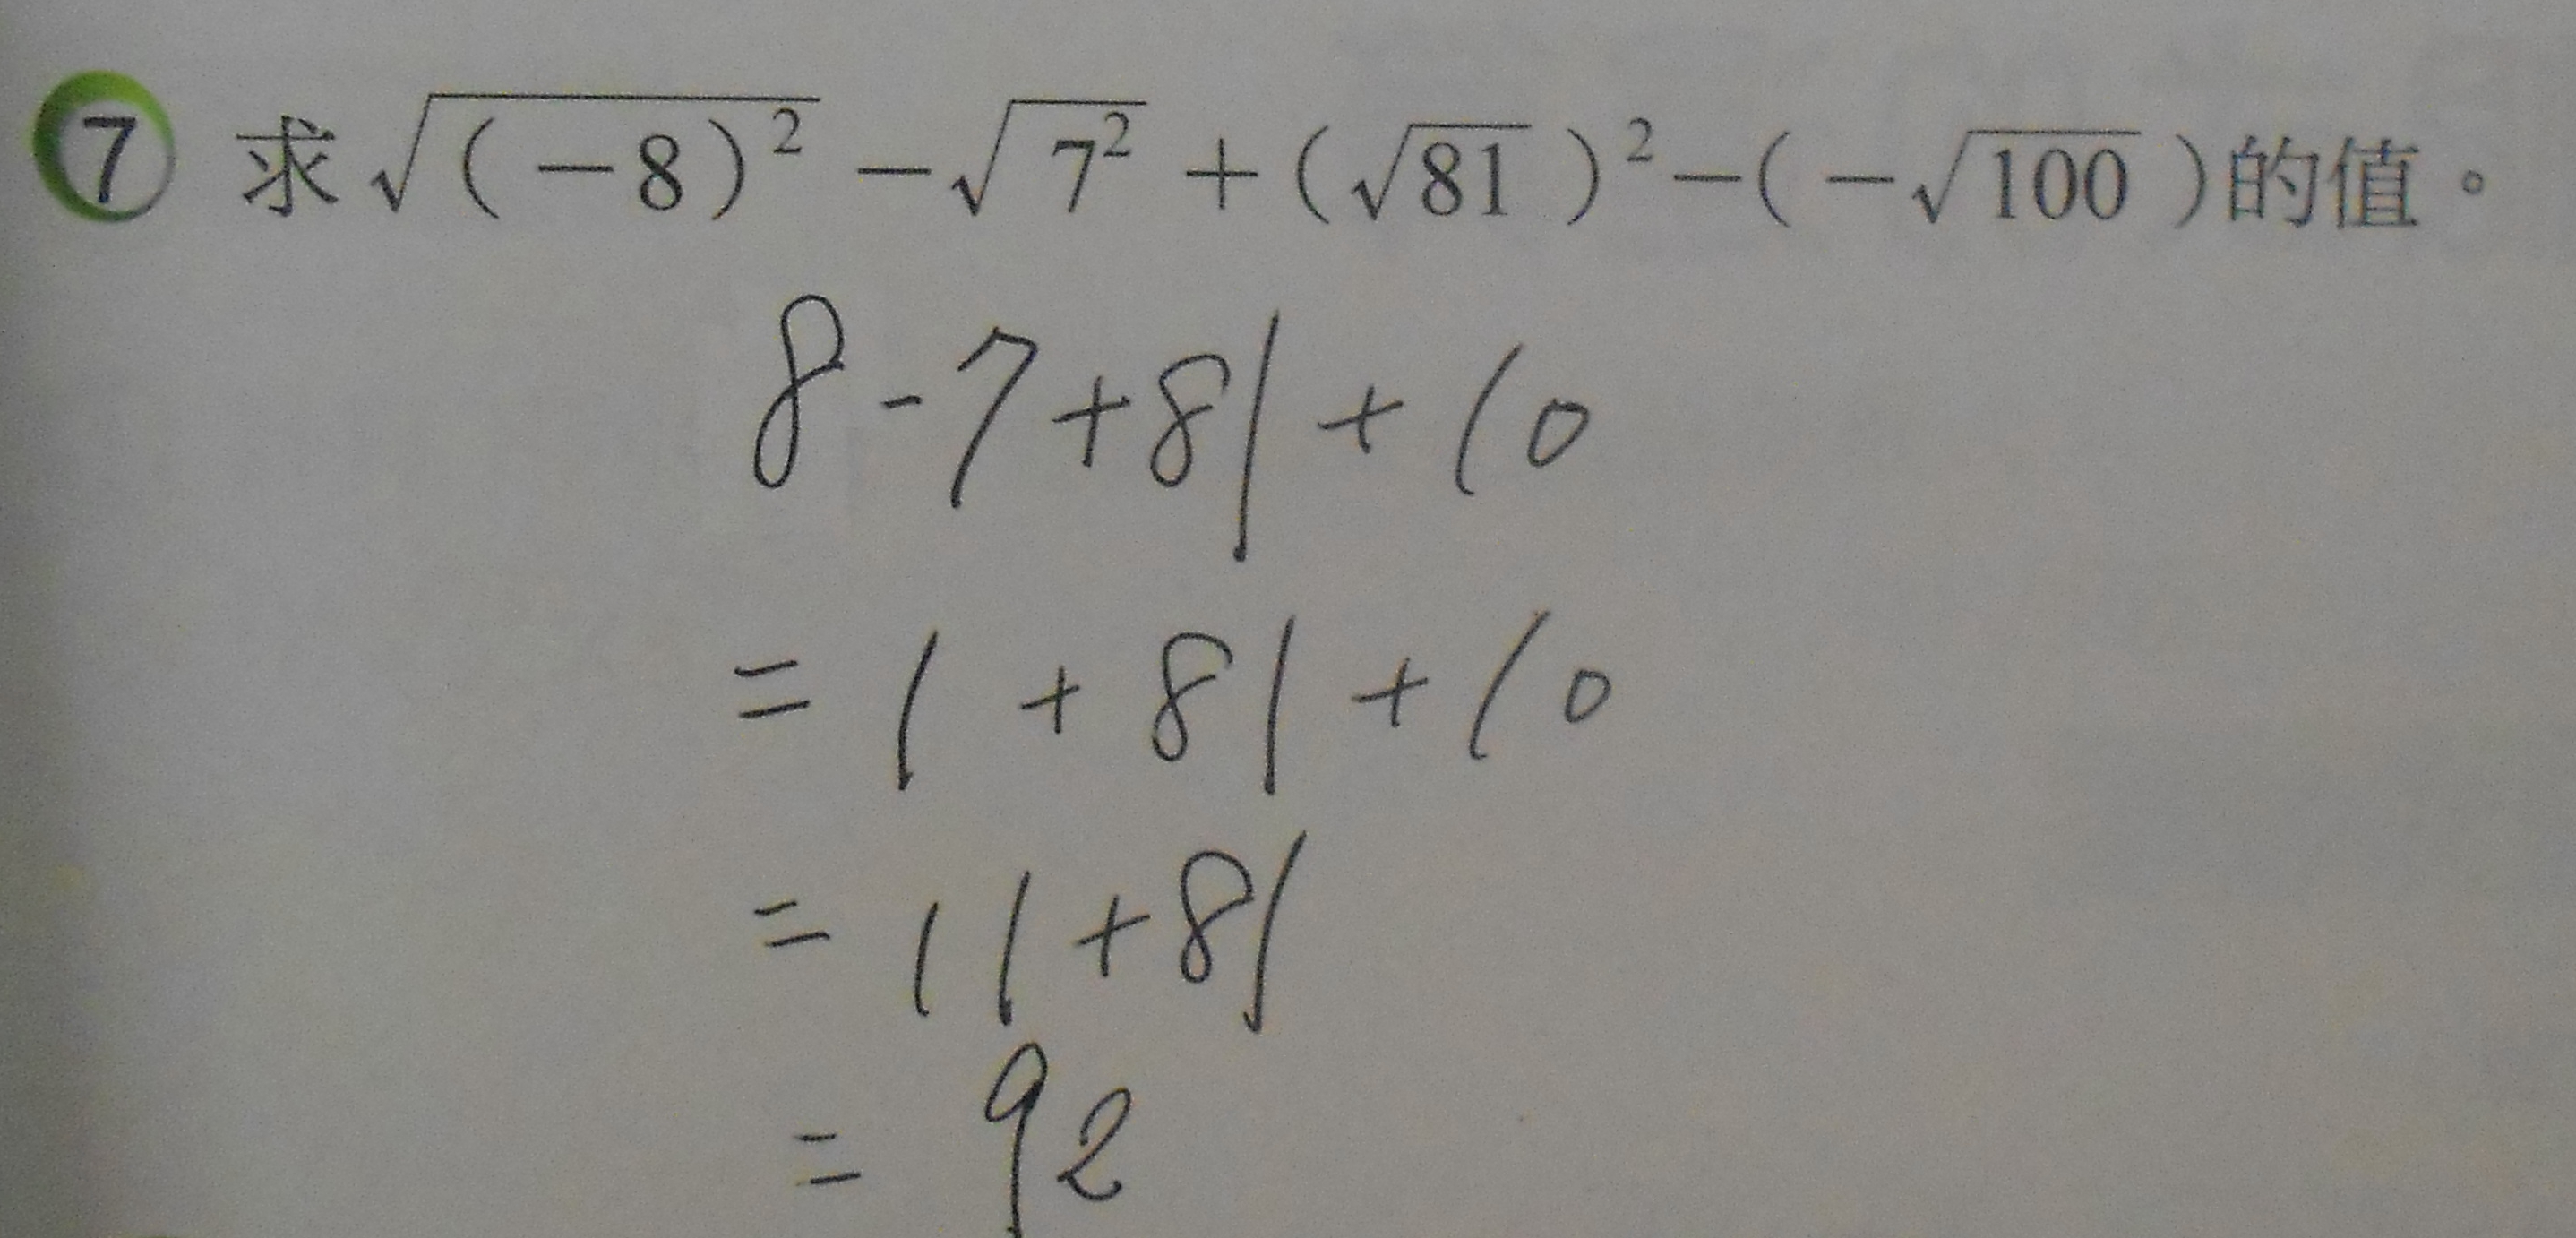 7 求√(-8)² -√7² +(√81)²-(-√100)的值。
8-7+81+10
=1+81+10
=11+81
=92